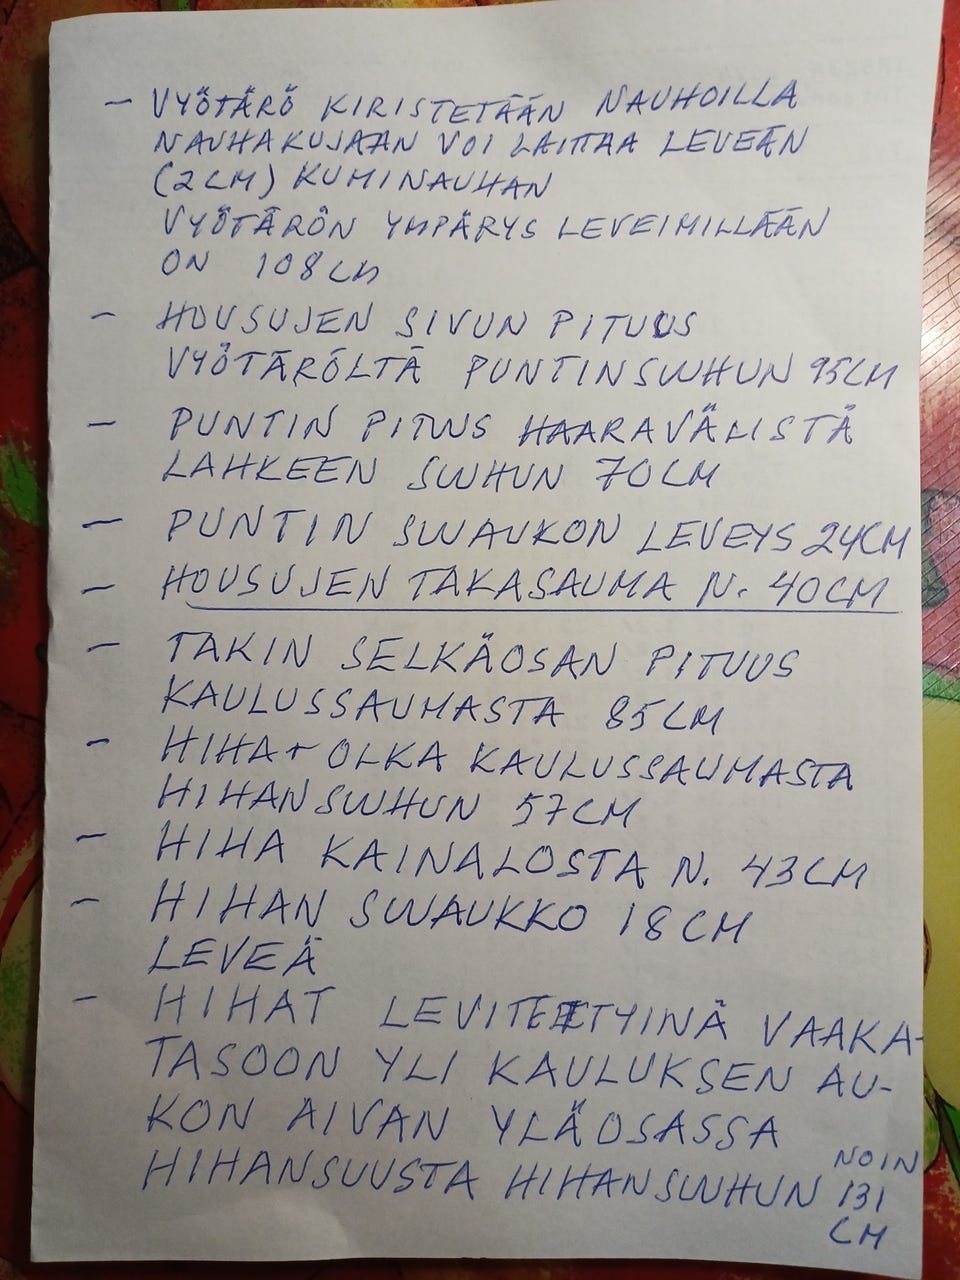 - VYÖTÄRÖ KIRISTETÄÄN NAUHOILLA
NAUHAKUJAAN VOI LAITTAA LEVEÄN
(2CM) KUMINAUHAN
VYÖTÄRÖN YMPÄRYS LEVEIMILLÄÄN
ON 108CM
- HOUSUJEN SIVUN PITUUS
VYÖTÄRÖLTÄ PUNTINSUUHUN 95CM
- PUNTIN PITUUS HAARAVÄLISTÄ
LAHKEEN SUUHUN 70CM
- PUNTIN SUUAUKON LEVEYS 24CM
- HOUSUJEN TAKASAUMA N. 40CM
- TAKIN SELKÄOSAN PITUUS
KAULUSSAUMASTA 85CM
- HIHA+OLKA KAULUSSAUMASTA
HIHANSUUHUN 57CM
- HIHA KAINALOSTA N. 43CM
- HIHAN SUUAUKKO 18CM
LEVEÄ
- HIHAT LEVITETTYINÄ VAAKA-
TASOON YLI KAULUKSEN AU-
KON AIVAN YLÄOSASSA
HIHANSUUSTA HIHANSUUHUN NOIN
131
CM